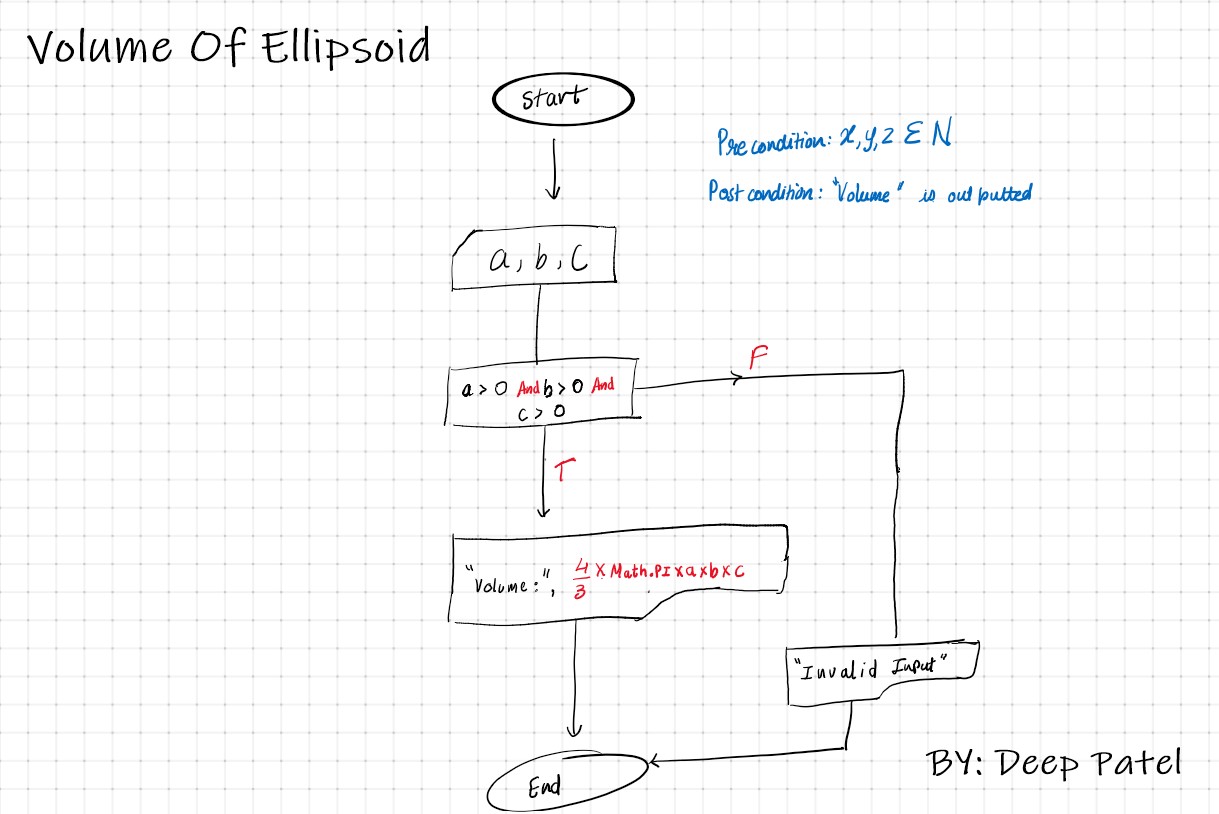 Volume Of Ellipsoid
Start
Pre condition: x,y,z ∈ N
Post condition: "Volume" is out putted
a, b, c
a > 0 And b > 0 And
c > 0
F
T
"Volume:", 4/3 x Math.PI x a x b x c
"Invalid Input"
End
BY: Deep Patel